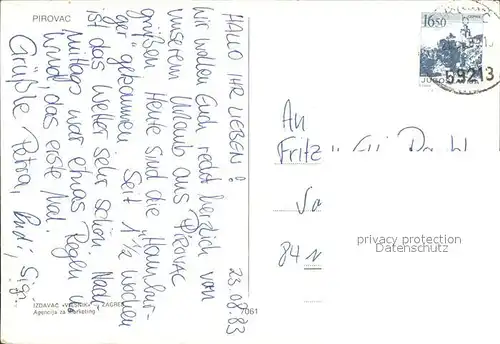 PIROVAC
23.08.83
HALLO IHR LIEBEN!
Wir wollen Euch recht herzlich von
unserem Urlaub aus PIROVAC
grüßen. Heute sind die "Hambur-
ger" gekommen. Seit 1 1/2 Wochen
ist das Wetter sehr schön. Nach-
mittag war etwas Regen u.
Wind, das erste Mal.
Grüße Petra,
IZDAVAČ »VJESNIK« – ZAGREB
Agencija za marketing
7061
16,50
JUGOSLAVIJA
59213
An
Fritz
84
privacy protection
Datenschutz